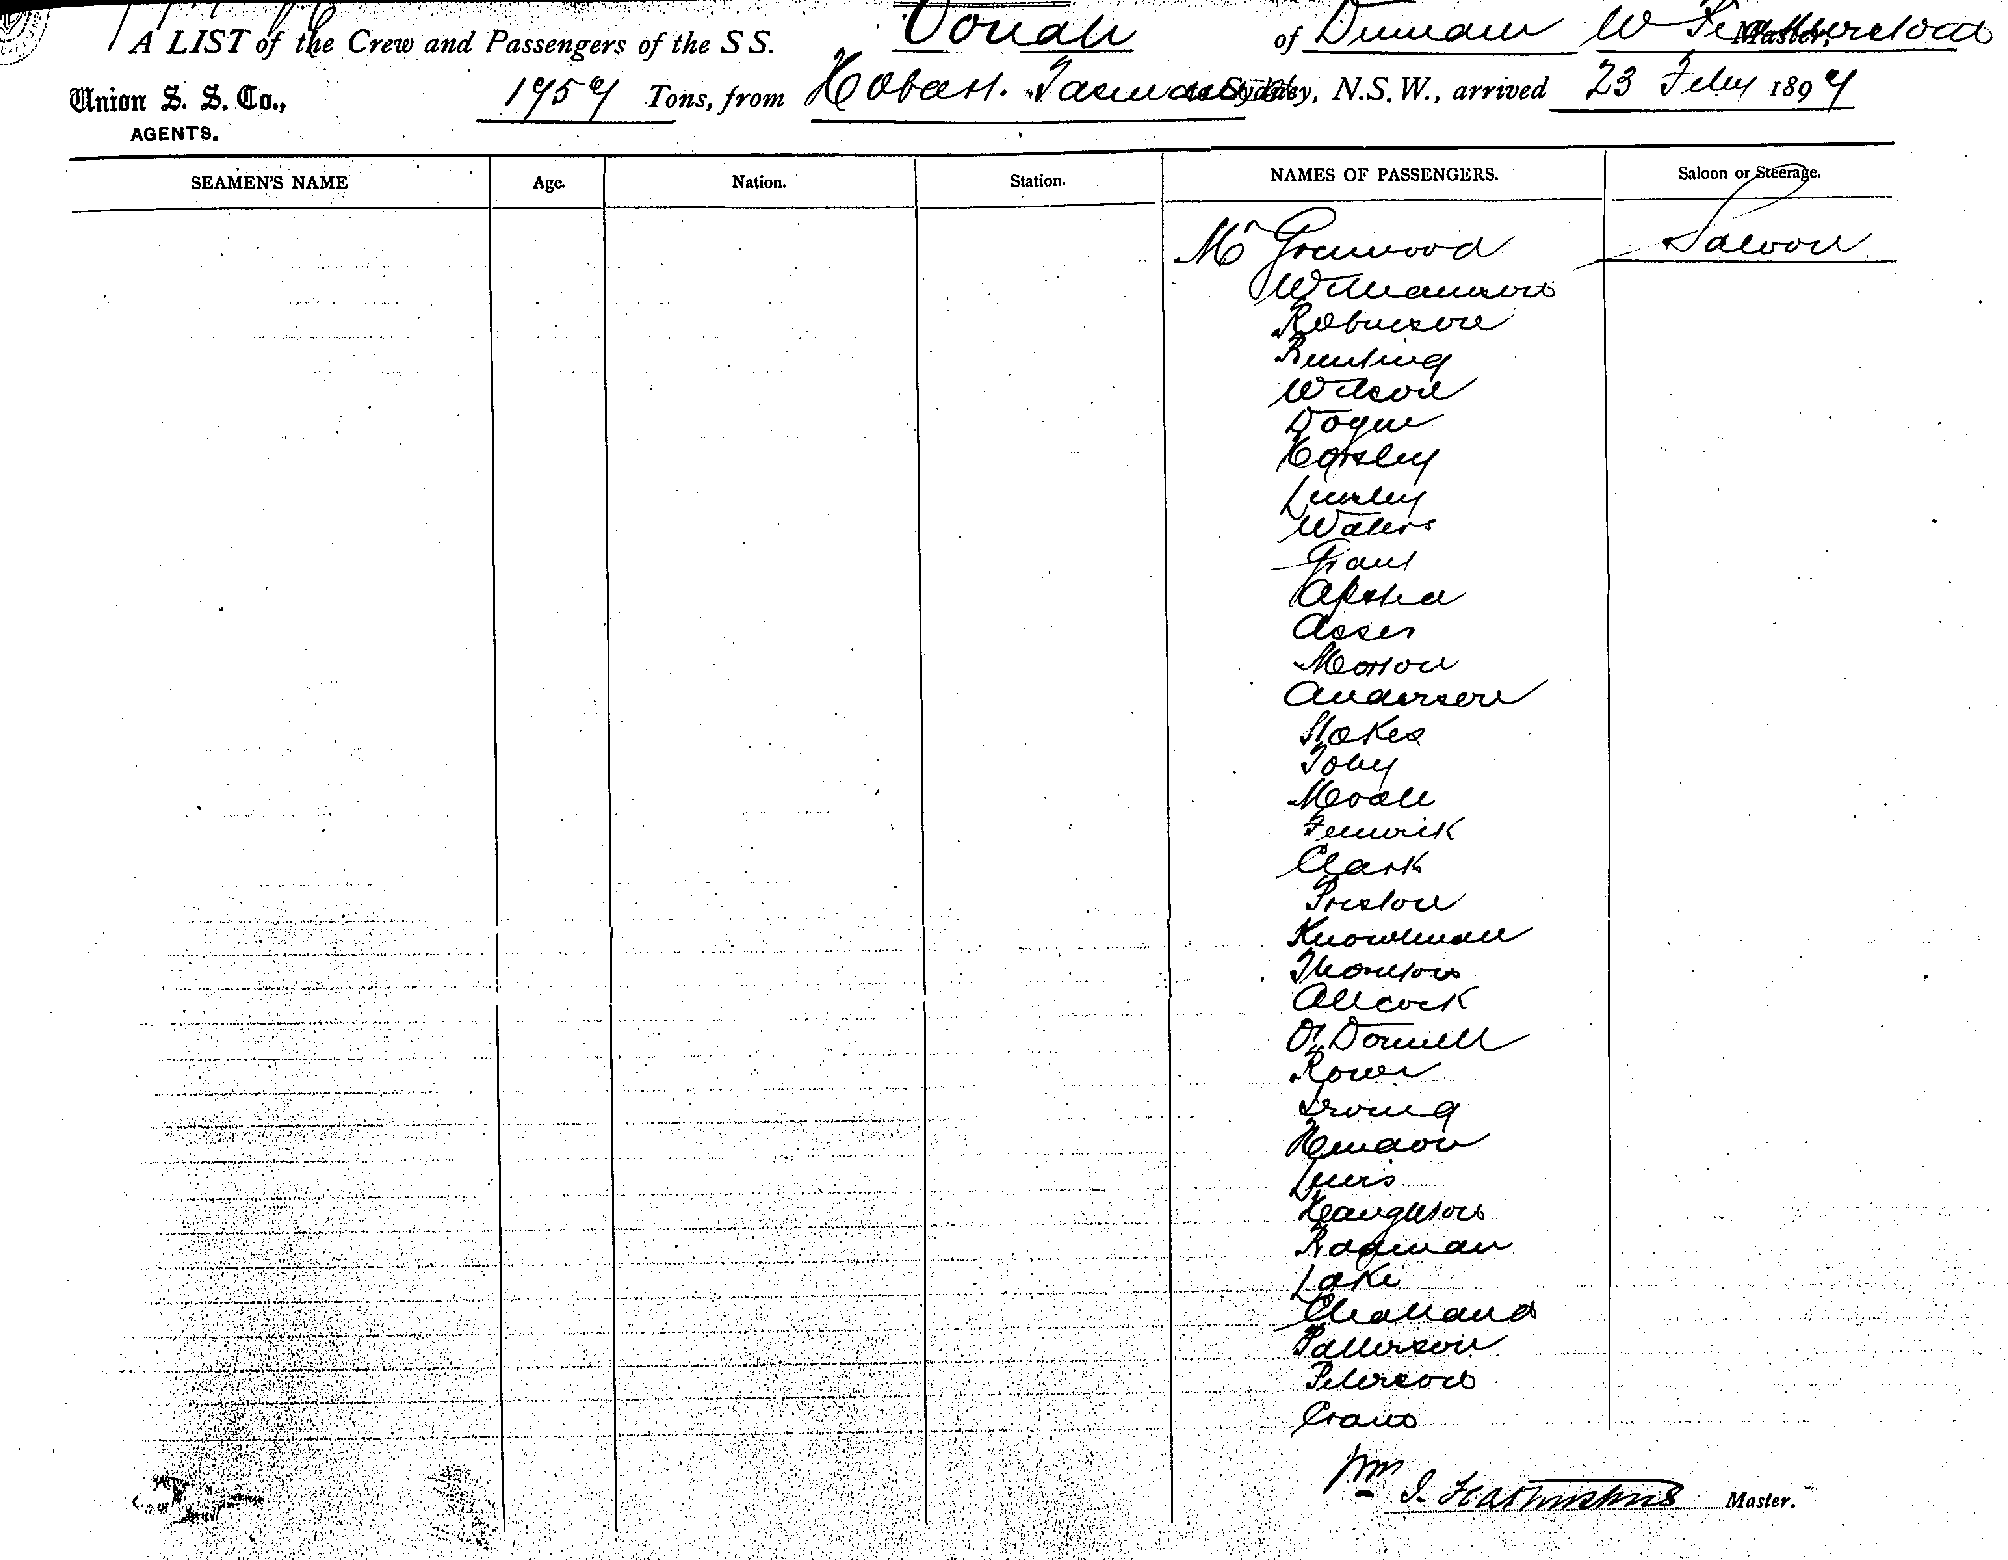 A LIST of the Crew and Passengers of the S S. Oonah of Dunedin W Featherstone Master,
Union S. S. Co., 1757 Tons, from Hobart. Tasmania to Sydney, N.S.W., arrived 23 Feby 1897
AGENTS.
SEAMEN'S NAME Age. Nation. Station. NAMES OF PASSENGERS. Saloon or Steerage.
Mr Greenwood Saloon
Williamson
Robinson
Bunting
Wilson
Hogue
Horsley
Lumley
Waters
Grant
Asser
Morson
Anderson
Stokes
Toby
Fenwick
Clark
Preston
Knowlman
Thornton
Allcock
O'Donnell
Rower
Irving
Lewis
Haughton
Lake
Challand
Patterson
Peterson
Wm J. Featherstone Master.